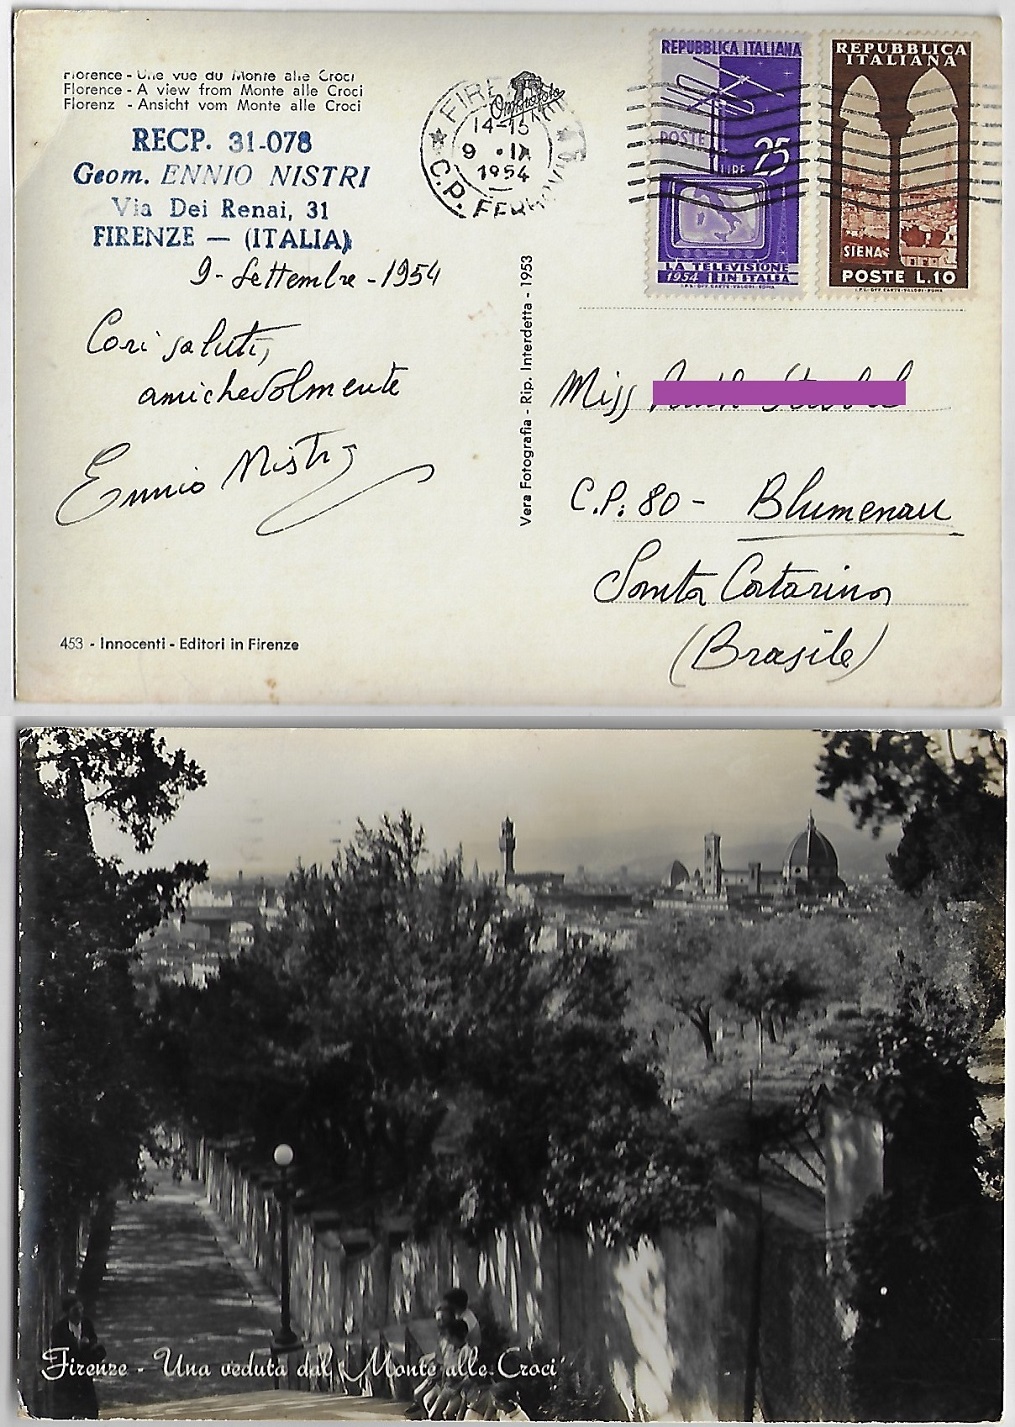 Florence - Une vue du Monte alle Croci
Florence - A view from Monte alle Croci
Florenz - Ansicht vom Monte alle Croci
RECP. 31-078
Geom. ENNIO NISTRI
Via Dei Renai, 31
FIRENZE — (ITALIA)
9 - Settembre - 1954
Cari saluti,
amichevolmente
Ennio Nistri
453 - Innocenti - Editori in Firenze
Vera Fotografia - Rip. Interdetta - 1953
14-15
9 · IX
1954
C.P.
REPUBBLICA ITALIANA
POSTE
LIRE 25
LA TELEVISIONE
1954 IN ITALIA
I.P.S. OFF. CARTE-VALORI-ROMA
REPUBBLICA
ITALIANA
SIENA
POSTE L.10
I.P.S. OFF. CARTE-VALORI-ROMA
Miss
C.P. 80 - Blumenau
Santa Catarina
(Brasile)
Firenze - Una veduta dal Monte alle Croci